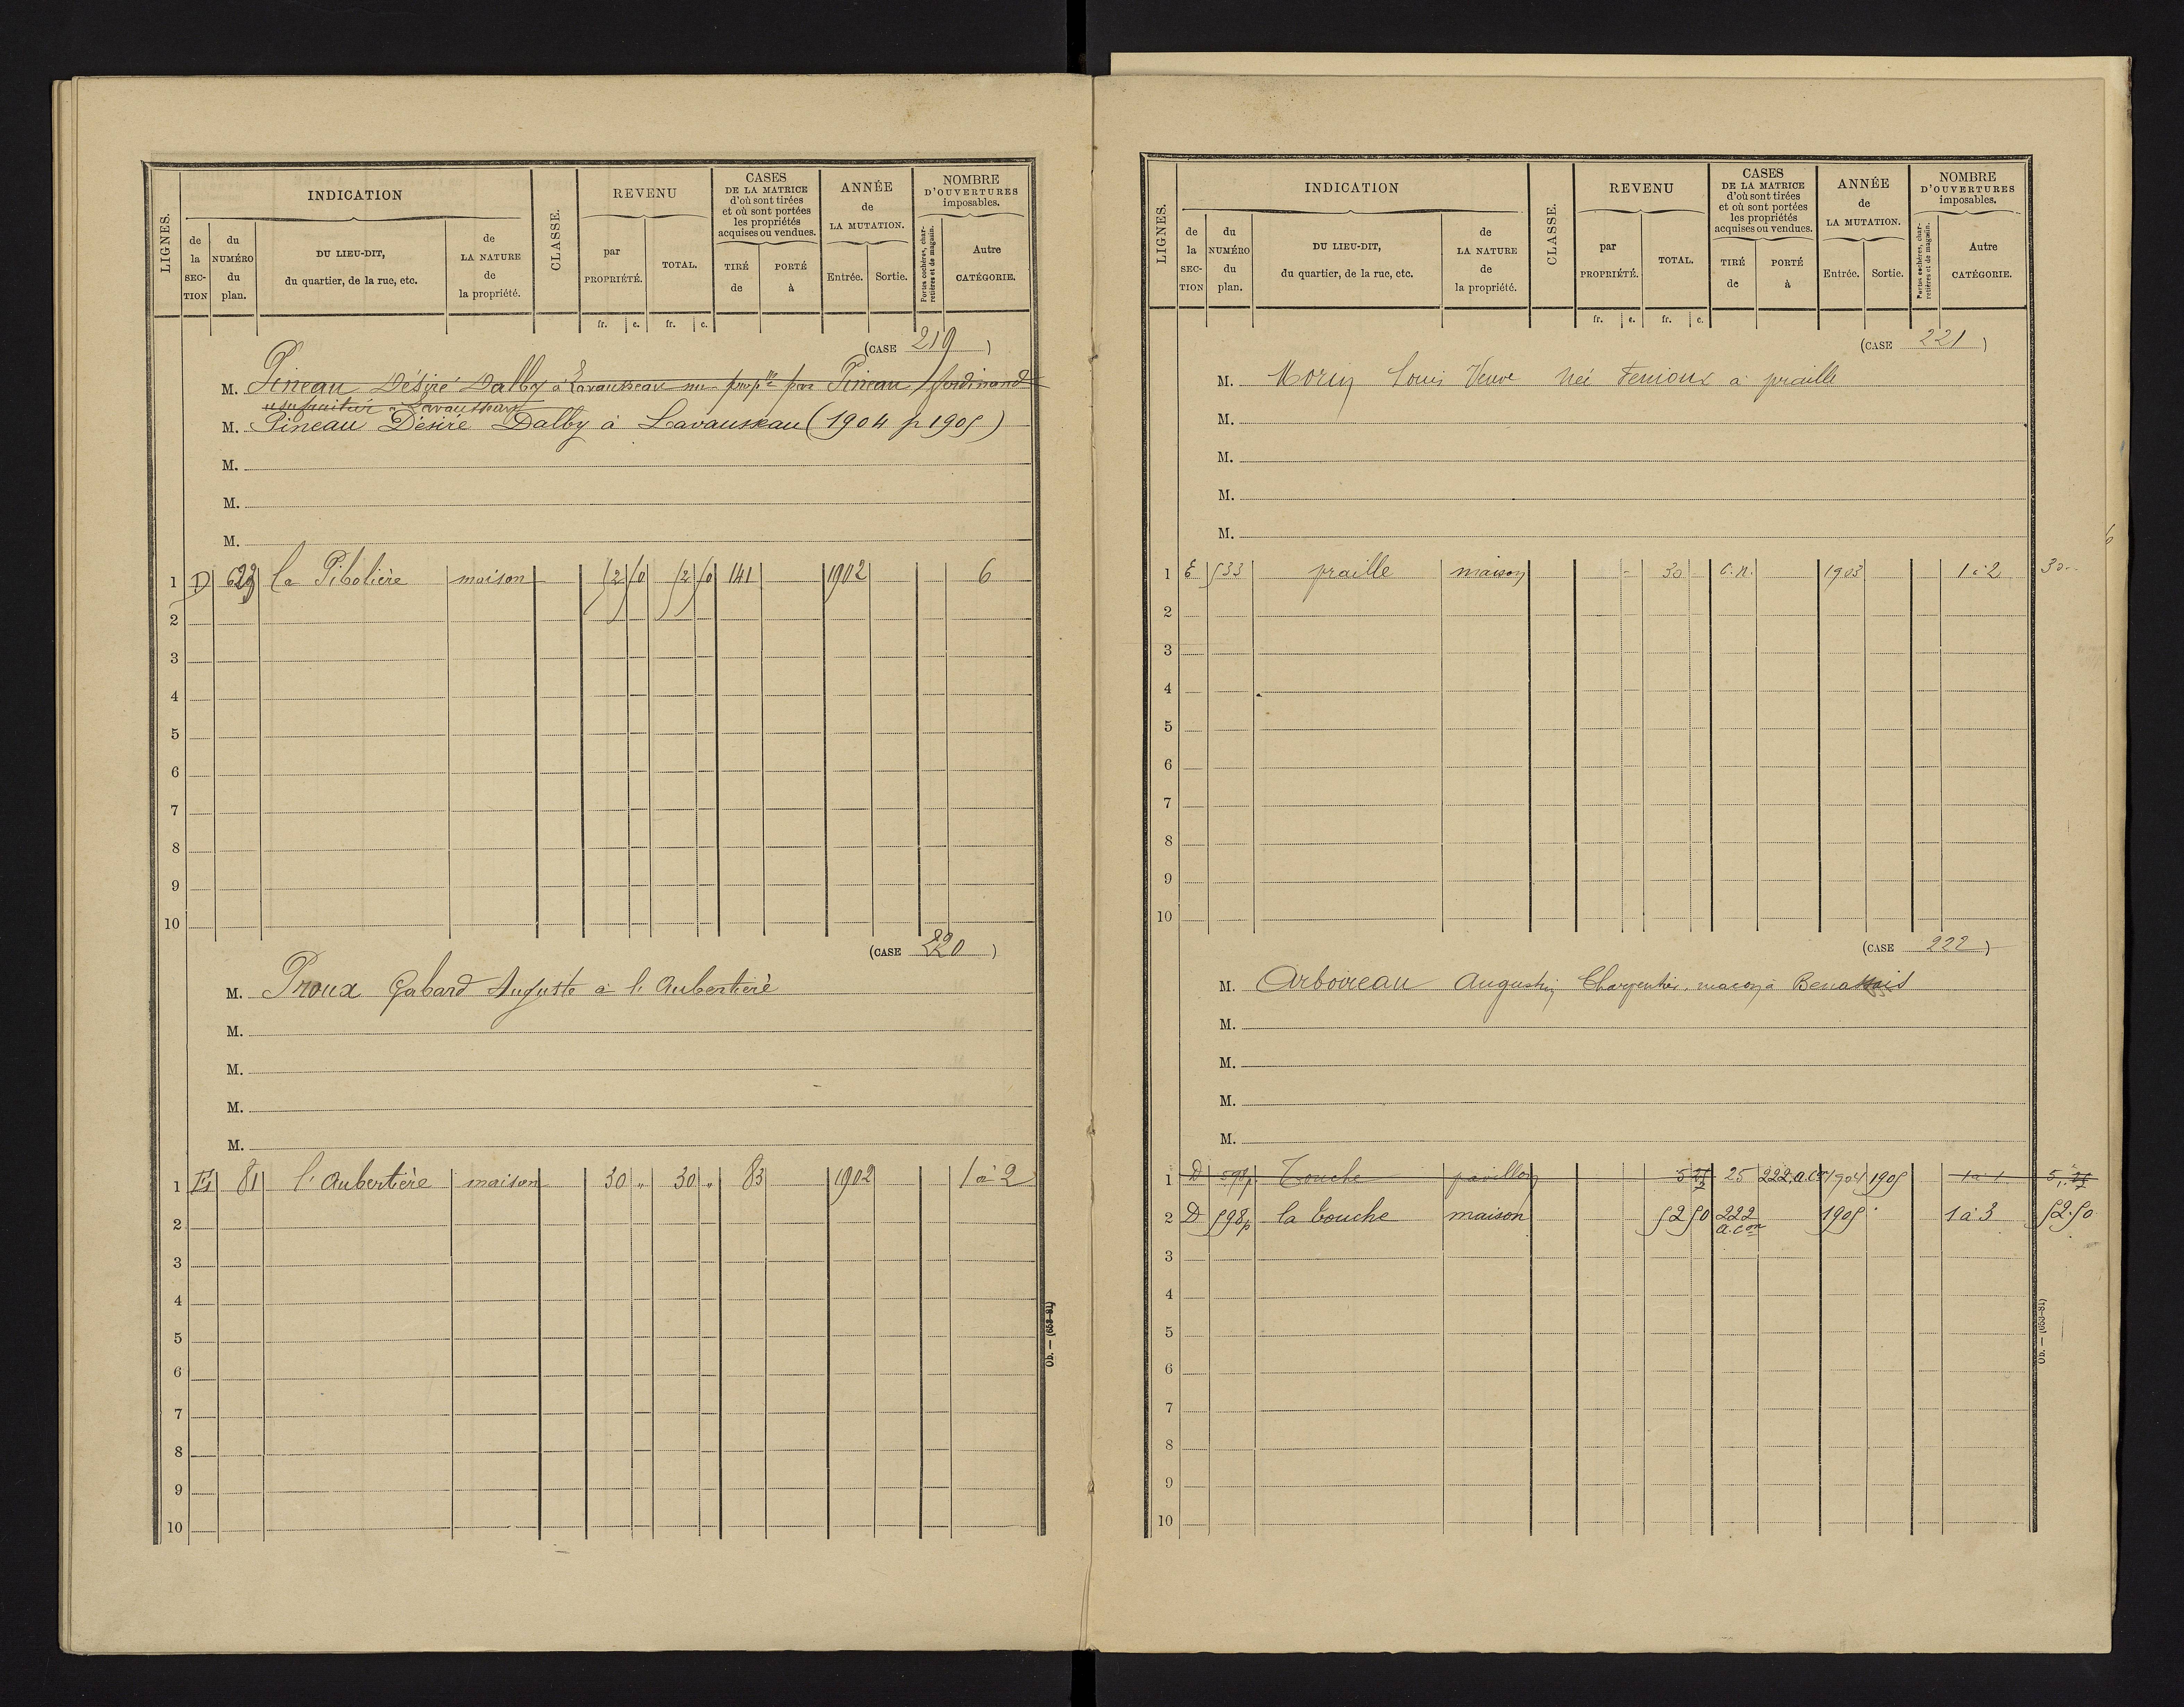 LIGNES.
INDICATION
CLASSE.
REVENU
CASES
DE LA MATRICE
d'où sont tirées
et où sont portées
les propriétés
acquises ou vendues.
ANNÉE
de
LA MUTATION.
NOMBRE
D'OUVERTURES
imposables.
de la SEC-TION
du NUMÉRO du plan.
DU LIEU-DIT,
du quartier, de la rue, etc.
de LA NATURE de la propriété.
par PROPRIÉTÉ.
TOTAL.
TIRÉ de
PORTÉ à
Entrée.
Sortie.
Portes cochères, char-
retières et de magasin.
Autre CATÉGORIE.
fr. c. fr. c.
(CASE 219)
M. Pineau Désiré Dalby à Lavausseau nu-propre par Pineau ferdinand
usufruitier à Lavausseau
M. Pineau Désiré Dalby à Lavausseau (1904 p 1905)
M.
M.
M.
1 D 623 la Pibolière maison 52 50 52 50 141 1902 6
2
3
4
5
6
7
8
9
10
(CASE 220)
M. Proux Gabard Auguste à l'Aubertière
M.
M.
M.
M.
1 81 l'Aubertière maison 30 " 30 " 83 1902 1 à 2
2
3
4
5
6
7
8
9
10
Ob. — (653-81)
LIGNES.
INDICATION
CLASSE.
REVENU
CASES
DE LA MATRICE
d'où sont tirées
et où sont portées
les propriétés
acquises ou vendues.
ANNÉE
de
LA MUTATION.
NOMBRE
D'OUVERTURES
imposables.
de la SEC-TION
du NUMÉRO du plan.
DU LIEU-DIT,
du quartier, de la rue, etc.
de LA NATURE de la propriété.
par PROPRIÉTÉ.
TOTAL.
TIRÉ de
PORTÉ à
Entrée.
Sortie.
Portes cochères, char-
retières et de magasin.
Autre CATÉGORIE.
fr. c. fr. c.
(CASE 221)
M. Morin Louis Veuve née Fenioux à praille
M.
M.
M.
M.
1 E 533 praille maison 30 C.N. 1903 1 à 2 30
2
3
4
5
6
7
8
9
10
(CASE 222)
M. Arboireau Augustin Charpentier, maçon à Benassais
M.
M.
M.
M.
1 D 598p Touche pavillon 5 25 25 222.a.con 1904 1905 1 à 1 5,25
2 D 598p la touche maison 52 50 222 a.con 1905 1 à 3 52.50
3
4
5
6
7
8
9
10
Ob. — (653-81)